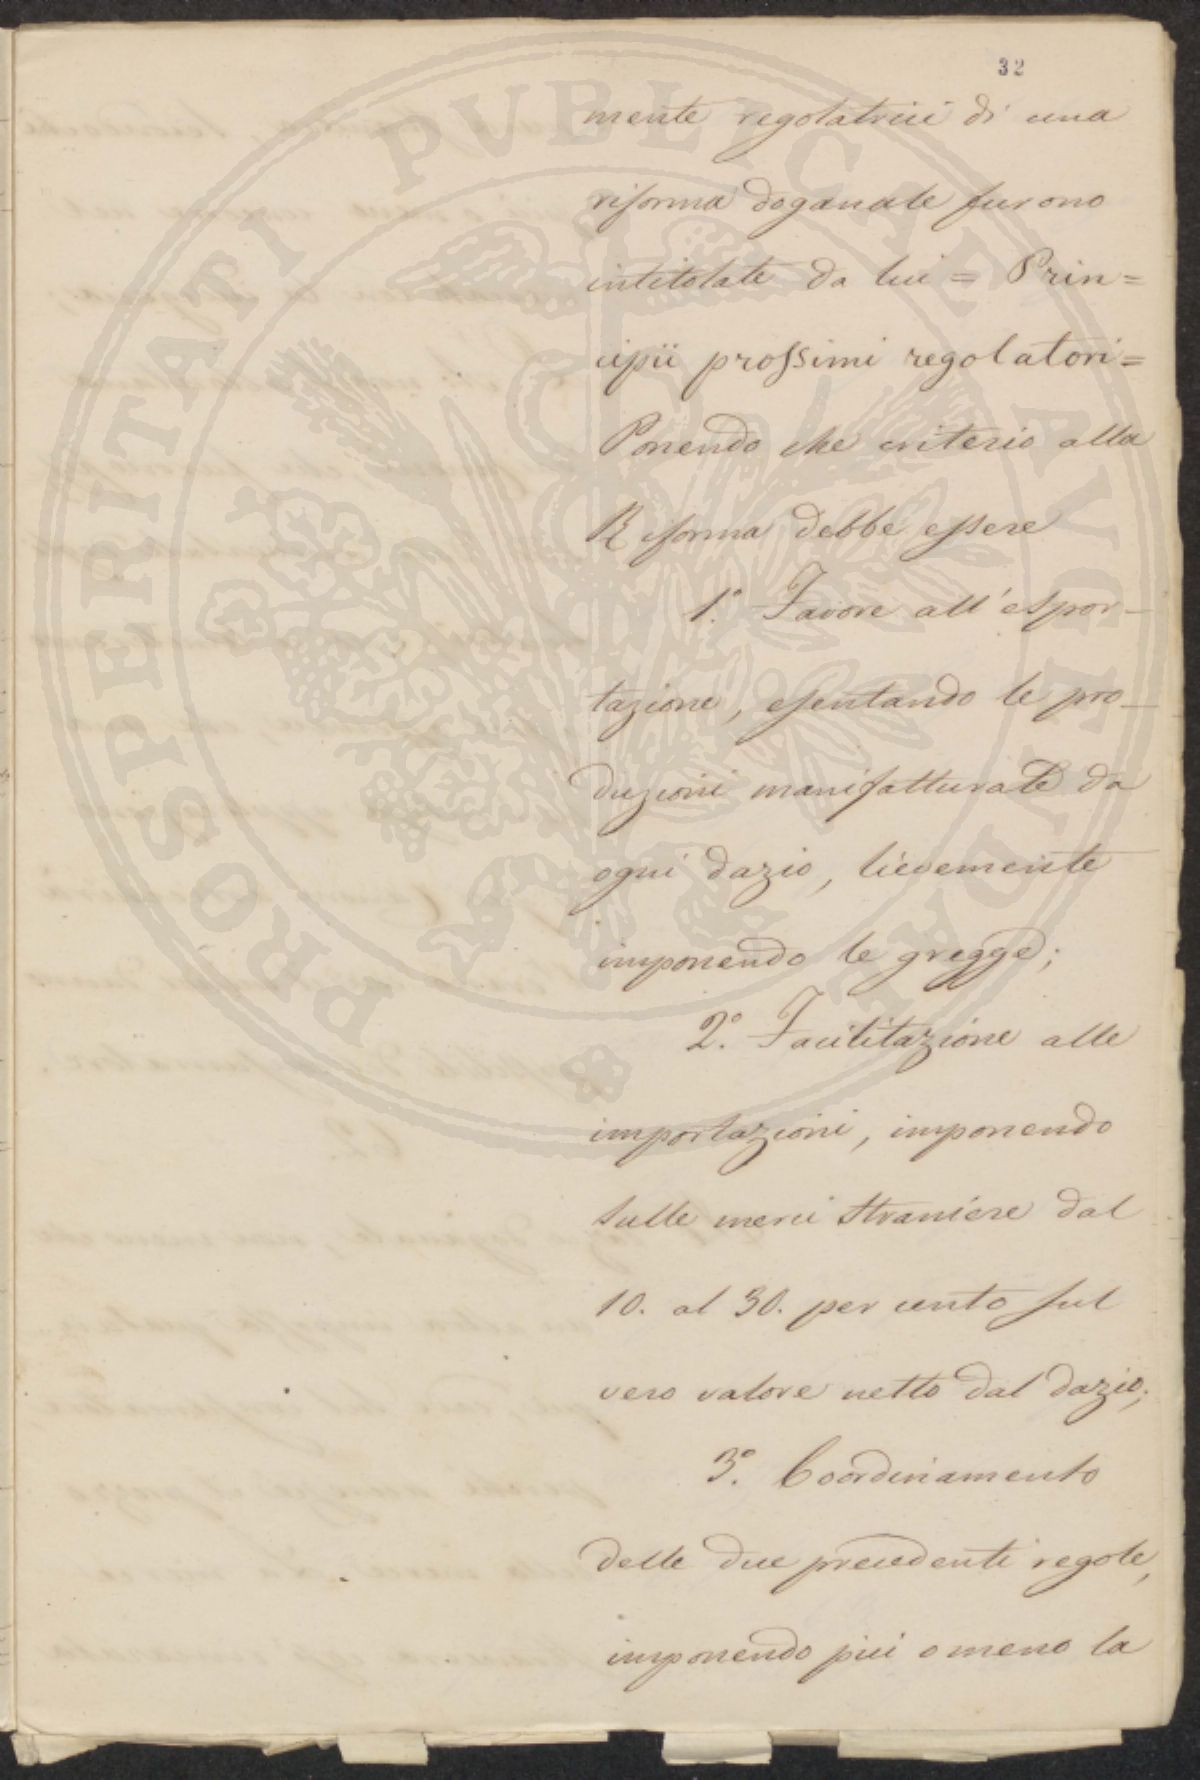 32
PROSPERITATI PVBLICAE AVGENDAE
mente regolatrici di una
riforma doganale furono
intitolate da lui = Prin=
cipii prossimi regolatori=
Ponendo che criterio alla
Riforma debbe essere
1.° Favore all'espor-
tazione, esentando le pro-
duzioni manifatturate da
ogni dazio, lievemente
imponendo le gregge;
2.° Facilitazione alle
importazioni, imponendo
sulle merci straniere dal
10. al 30. per cento sul
vero valore netto dal dazio;
3.° Coordinamento
delle due precedenti regole,
imponendo più o meno la